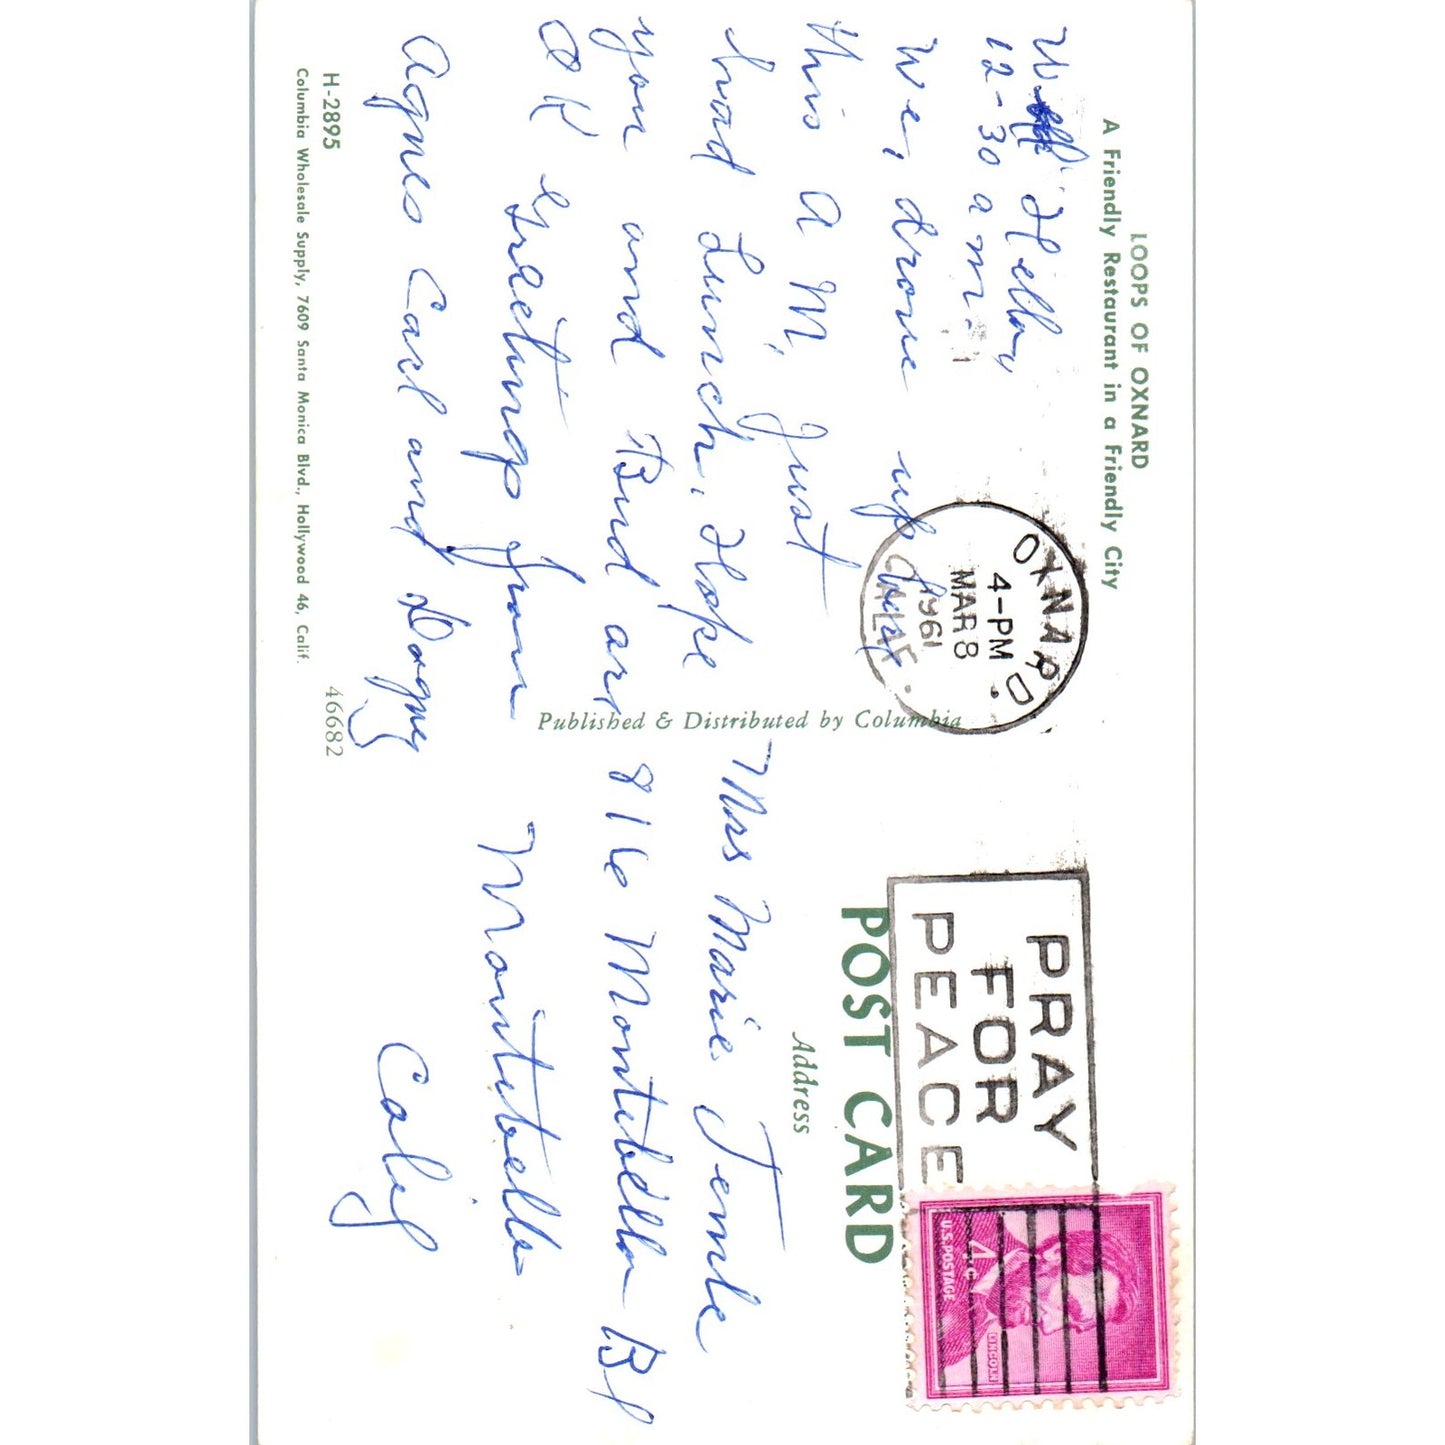 LOOPS OF OXNARD
A Friendly Restaurant in a Friendly City
Hellow
12-30 a m.
We, drove up here
this A M, Just
had Lunch, Hope
you and Bud are
OK Greetings from
Agnes Carl and
H-2895
Columbia Wholesale Supply, 7609 Santa Monica Blvd., Hollywood 46, Calif.
46682
Published & Distributed by Columbia
OXNARD
4-PM
MAR 8
1961
CALIF.
PRAY
FOR
PEACE
U.S. POSTAGE
4¢
LINCOLN
POST CARD
Address
Mrs Marie Temle
816 Montebello Bl
Montebello
Calif